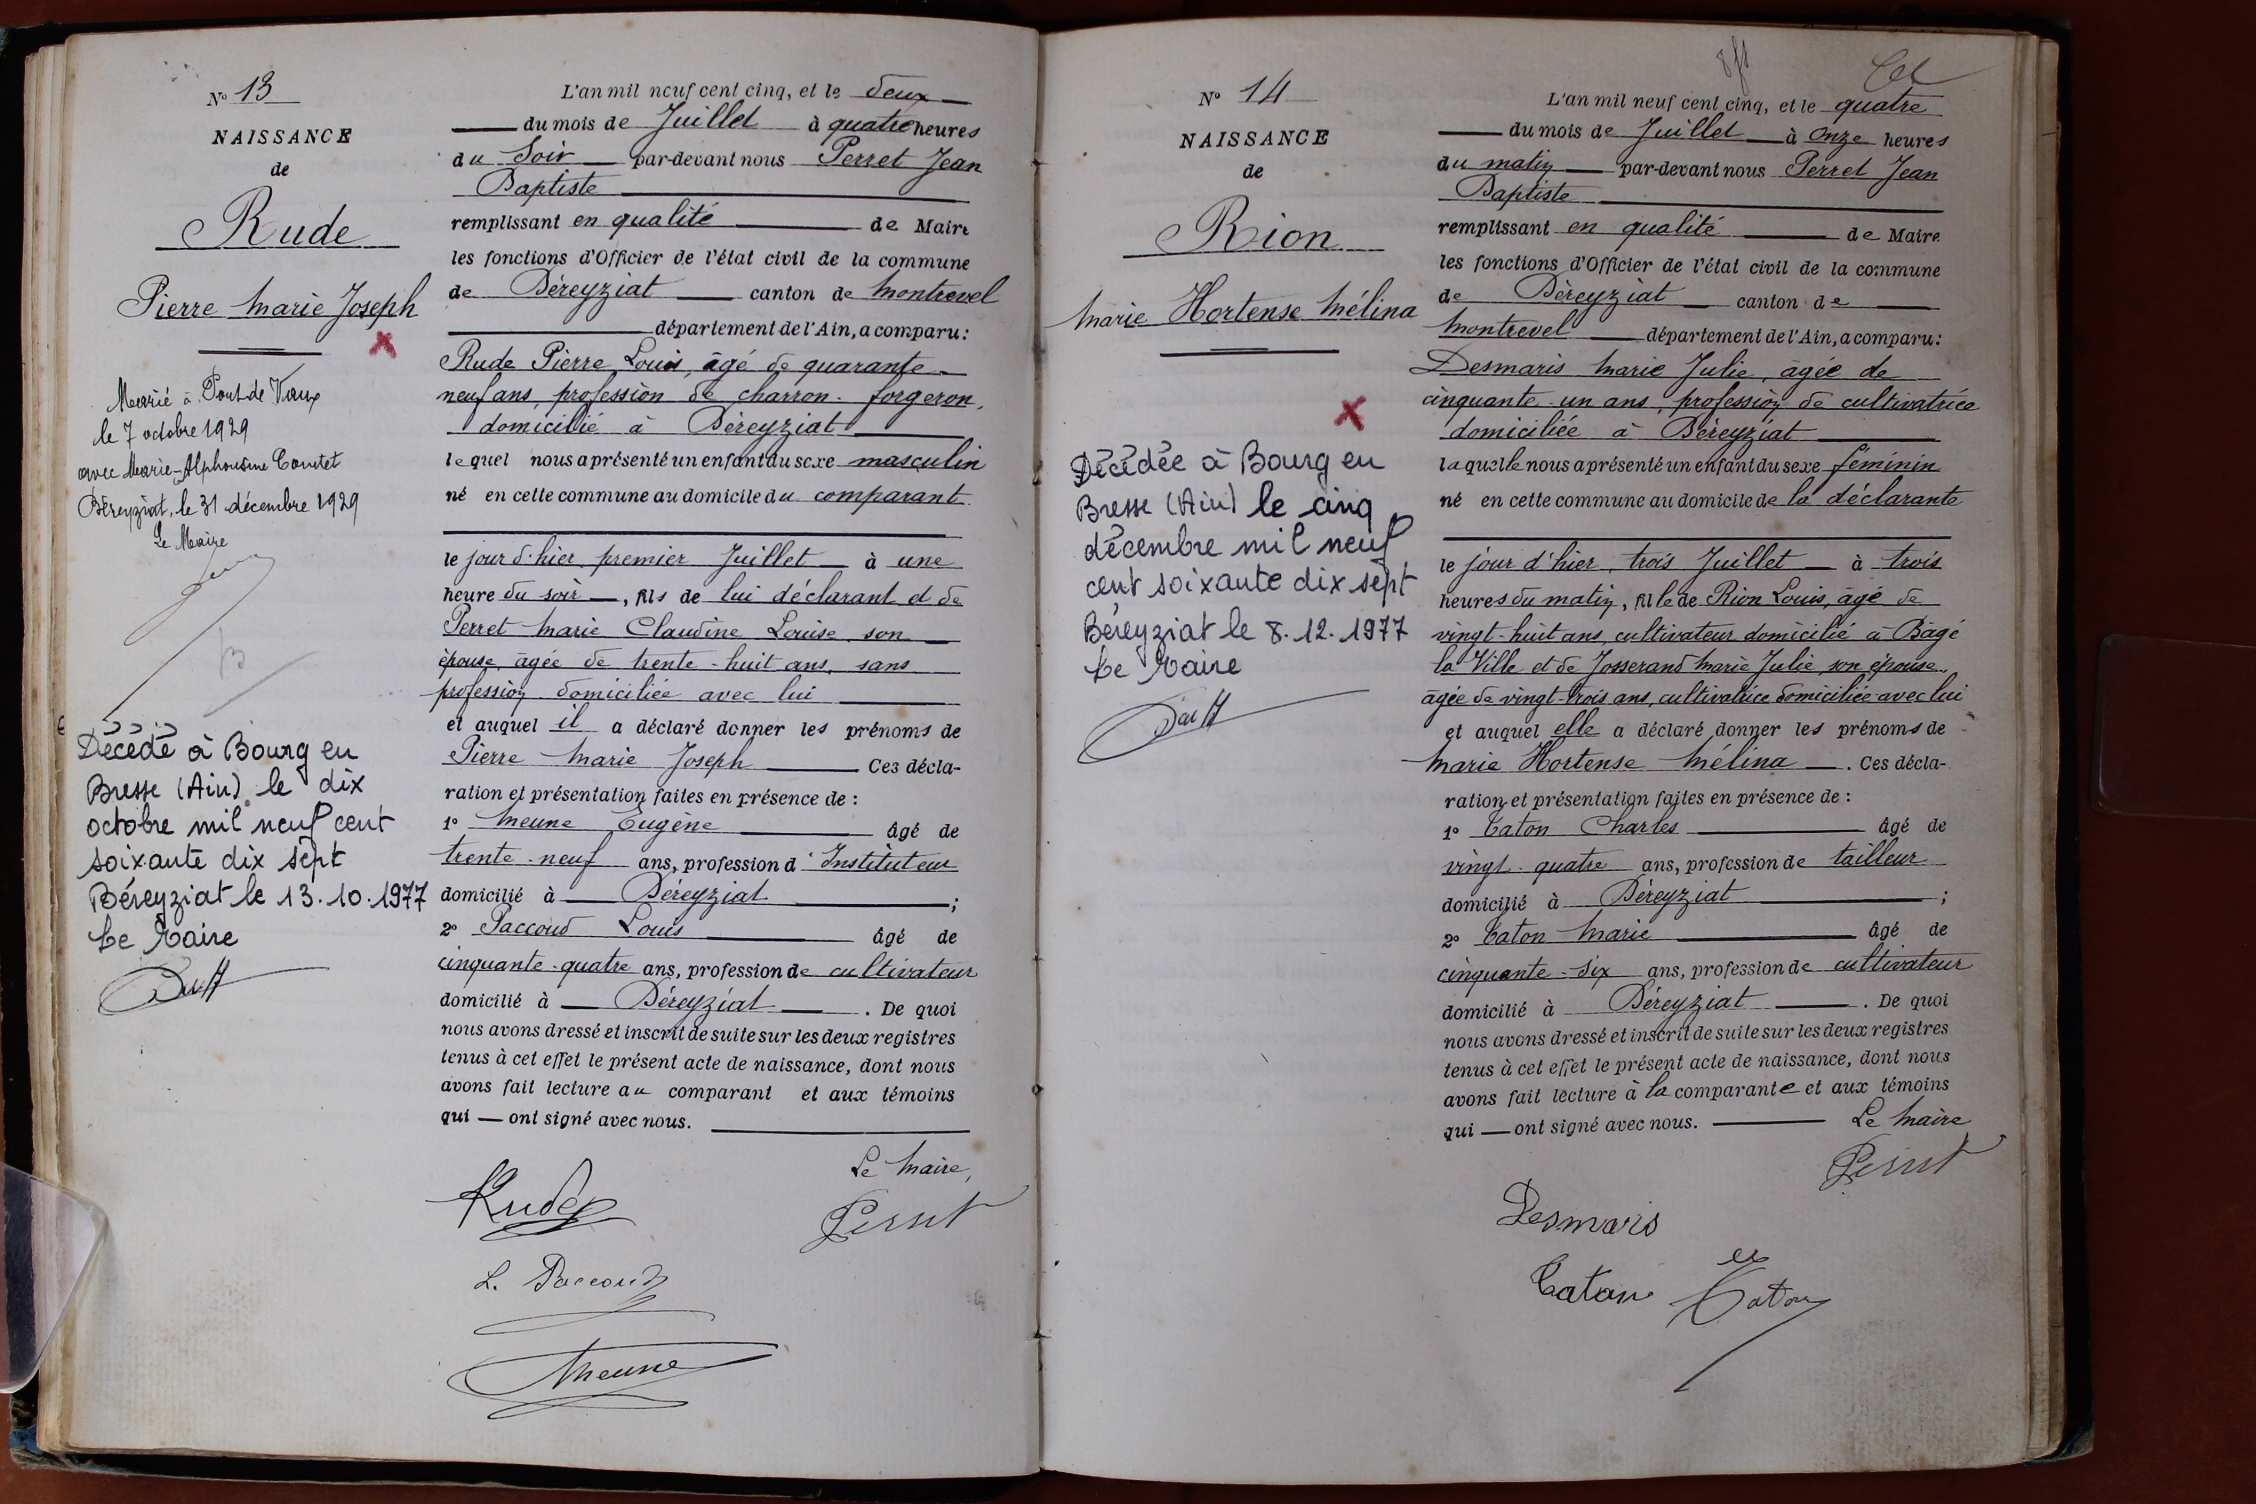 N° 13
NAISSANCE
de
Rude
Pierre Marie Joseph
Marié à Pont-de-Vaux
le 7 octobre 1929
avec Marie-Alphonsine Comtet
Béreyziat, le 31 décembre 1929
Le Maire
Décédé à Bourg en
Bresse (Ain) le dix
octobre mil neuf cent
soixante dix sept
Béreyziat le 13.10.1977
Le Maire
L'an mil neuf cent cinq, et le deux
du mois de Juillet à quatre heures
du Soir par-devant nous Perret Jean
Baptiste
remplissant en qualité de Maire
les fonctions d'Officier de l'état civil de la commune
de Béreyziat canton de Montrevel
département de l'Ain, a comparu:
Rude Pierre Louis, âgé de quarante-
neuf ans, profession de charron-forgeron,
domicilié à Béreyziat
lequel nous a présenté un enfant du sexe masculin
né en cette commune au domicile du comparant
le jour d'hier, premier Juillet à une
heure du soir, fils de lui déclarant et de
Perret Marie Claudine Louise, son
épouse, âgée de trente-huit ans, sans
profession domiciliée avec lui
et auquel il a déclaré donner les prénoms de
Pierre Marie Joseph Ces décla-
ration et présentation faites en présence de:
1° Meune Eugène âgé de
trente-neuf ans, profession d'Instituteur
domicilié à Béreyziat ;
2° Paccoud Louis âgé de
cinquante-quatre ans, profession de cultivateur
domicilié à Béreyziat. De quoi
nous avons dressé et inscrit de suite sur les deux registres
tenus à cet effet le présent acte de naissance, dont nous
avons fait lecture au comparant et aux témoins
qui — ont signé avec nous.
Le Maire,
Rude
Perret
L. Paccoud
Meune
N° 14
NAISSANCE
de
Rion
Marie Hortense Mélina
Décédée à Bourg en
Bresse (Ain) le cinq
décembre mil neuf
cent soixante dix sept
Béreyziat le 8.12.1977
Le Maire
L'an mil neuf cent cinq, et le quatre
du mois de Juillet à onze heures
du matin par-devant nous Perret Jean
Baptiste
remplissant en qualité de Maire
les fonctions d'Officier de l'état civil de la commune
de Béreyziat canton de
Montrevel département de l'Ain, a comparu:
Desmaris Marie Julie, âgée de
cinquante-un ans, profession de cultivatrice
domiciliée à Béreyziat
laquelle nous a présenté un enfant du sexe féminin
né en cette commune au domicile de la déclarante
le jour d'hier, trois Juillet à trois
heures du matin, fille de Rion Louis, âgé de
vingt-huit ans, cultivateur domicilié à Bâgé
la Ville et de Josserand Marie Julie, son épouse,
âgée de vingt-trois ans, cultivatrice domiciliée avec lui
et auquel elle a déclaré donner les prénoms de
Marie Hortense Mélina. Ces décla-
ration et présentation faites en présence de:
1° Caton Charles âgé de
vingt-quatre ans, profession de tailleur
domicilié à Béreyziat ;
2° Caton Marie âgé de
cinquante-six ans, profession de cultivateur
domicilié à Béreyziat. De quoi
nous avons dressé et inscrit de suite sur les deux registres
tenus à cet effet le présent acte de naissance, dont nous
avons fait lecture à la comparante et aux témoins
qui — ont signé avec nous. Le Maire
Perret
Desmaris
Caton Caton